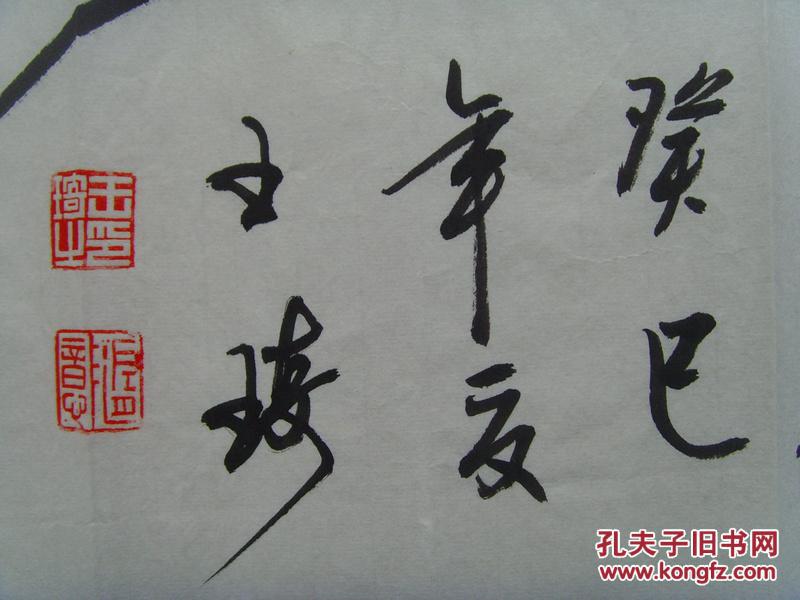 癸巳
年夏
王琦
孔夫子旧书网
www.kongfz.com